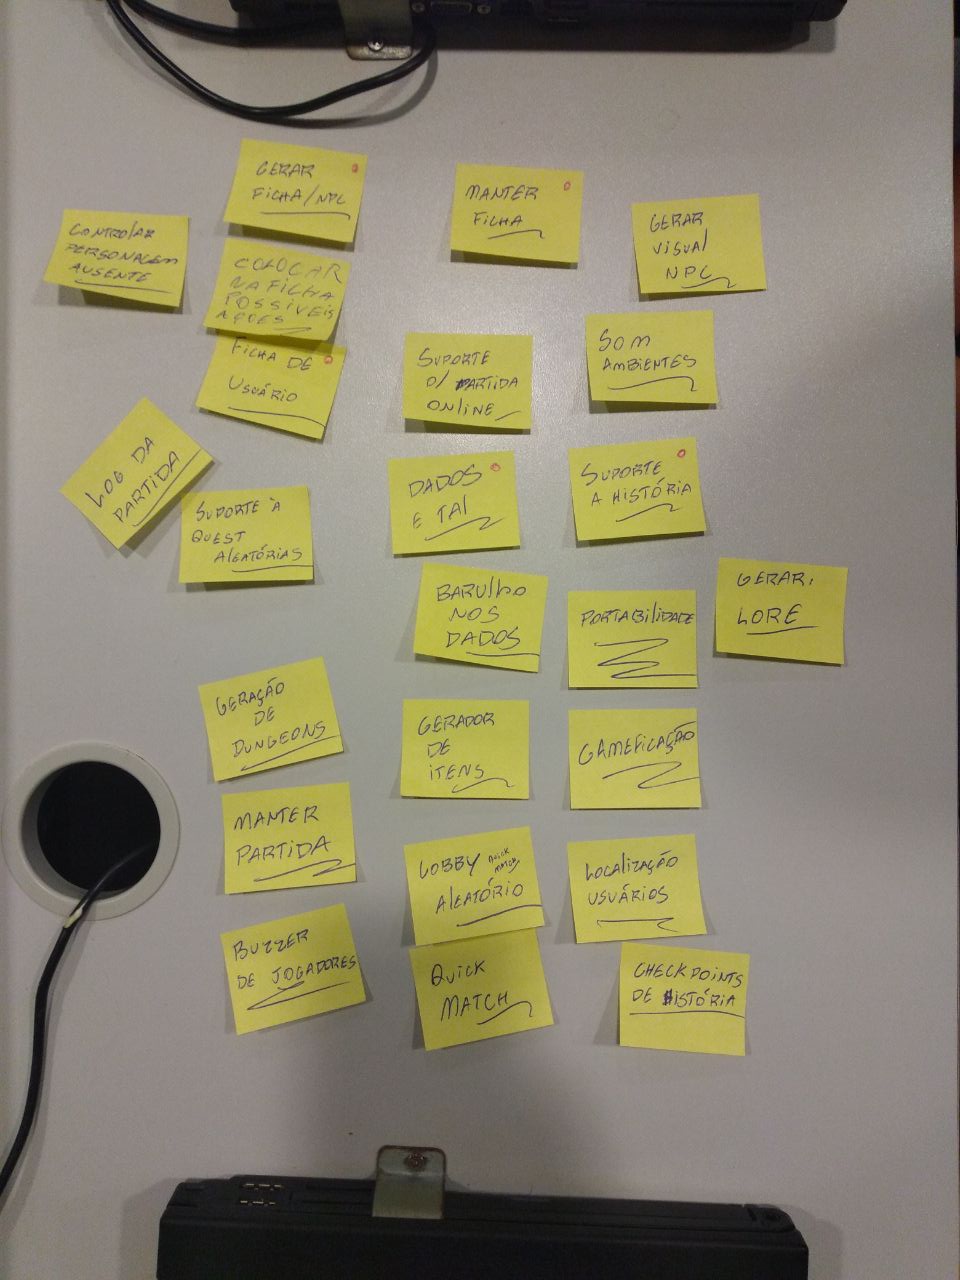 GERAR
FICHA/NPC
MANTER
FICHA
GERAR
VISUAL
NPC
CONTROLAR
PERSONAGEM
AUSENTE
COLOCAR
NA FICHA
POSSÍVEIS
AÇOES
FICHA DE
USUÁRIO
SUPORTE
P/ PARTIDA
ONLINE
SOM
AMBIENTES
LOG DA
PARTIDA
SUPORTE À
QUEST
ALEATÓRIAS
DADOS
E TAL
SUPORTE
A HISTÓRIA
BARULHO
NOS
DADOS
PORTABILIDADE
GERAR.
LORE
GERAÇÃO
DE
DUNGEONS
GERADOR
DE
ITENS
GAMEFICAÇÃO
MANTER
PARTIDA
LOBBY QUICK
MATCH
ALEATÓRIO
LOCALIZAÇÃO
USUÁRIOS
BUZZER
DE JOGADORES
QUICK
MATCH
CHECKPOINTS
DE HISTÓRIA